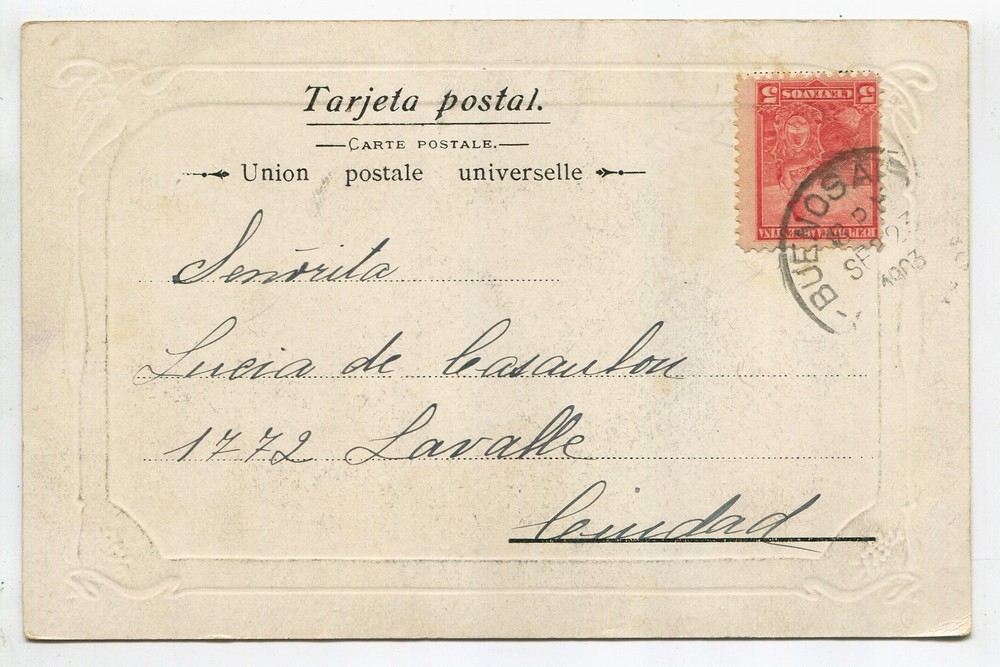 Tarjeta postal.
CARTE POSTALE.
Union postale universelle
5 CENTAVOS 5
REPUBLICA ARGENTINA
BUENOS A
SE 23
1903
Señorita
Lucia de Casaubon
1772 Lavalle
Ciudad